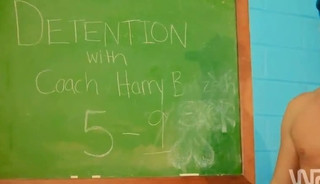 DETENTION
with
Coach Harry B
5-9